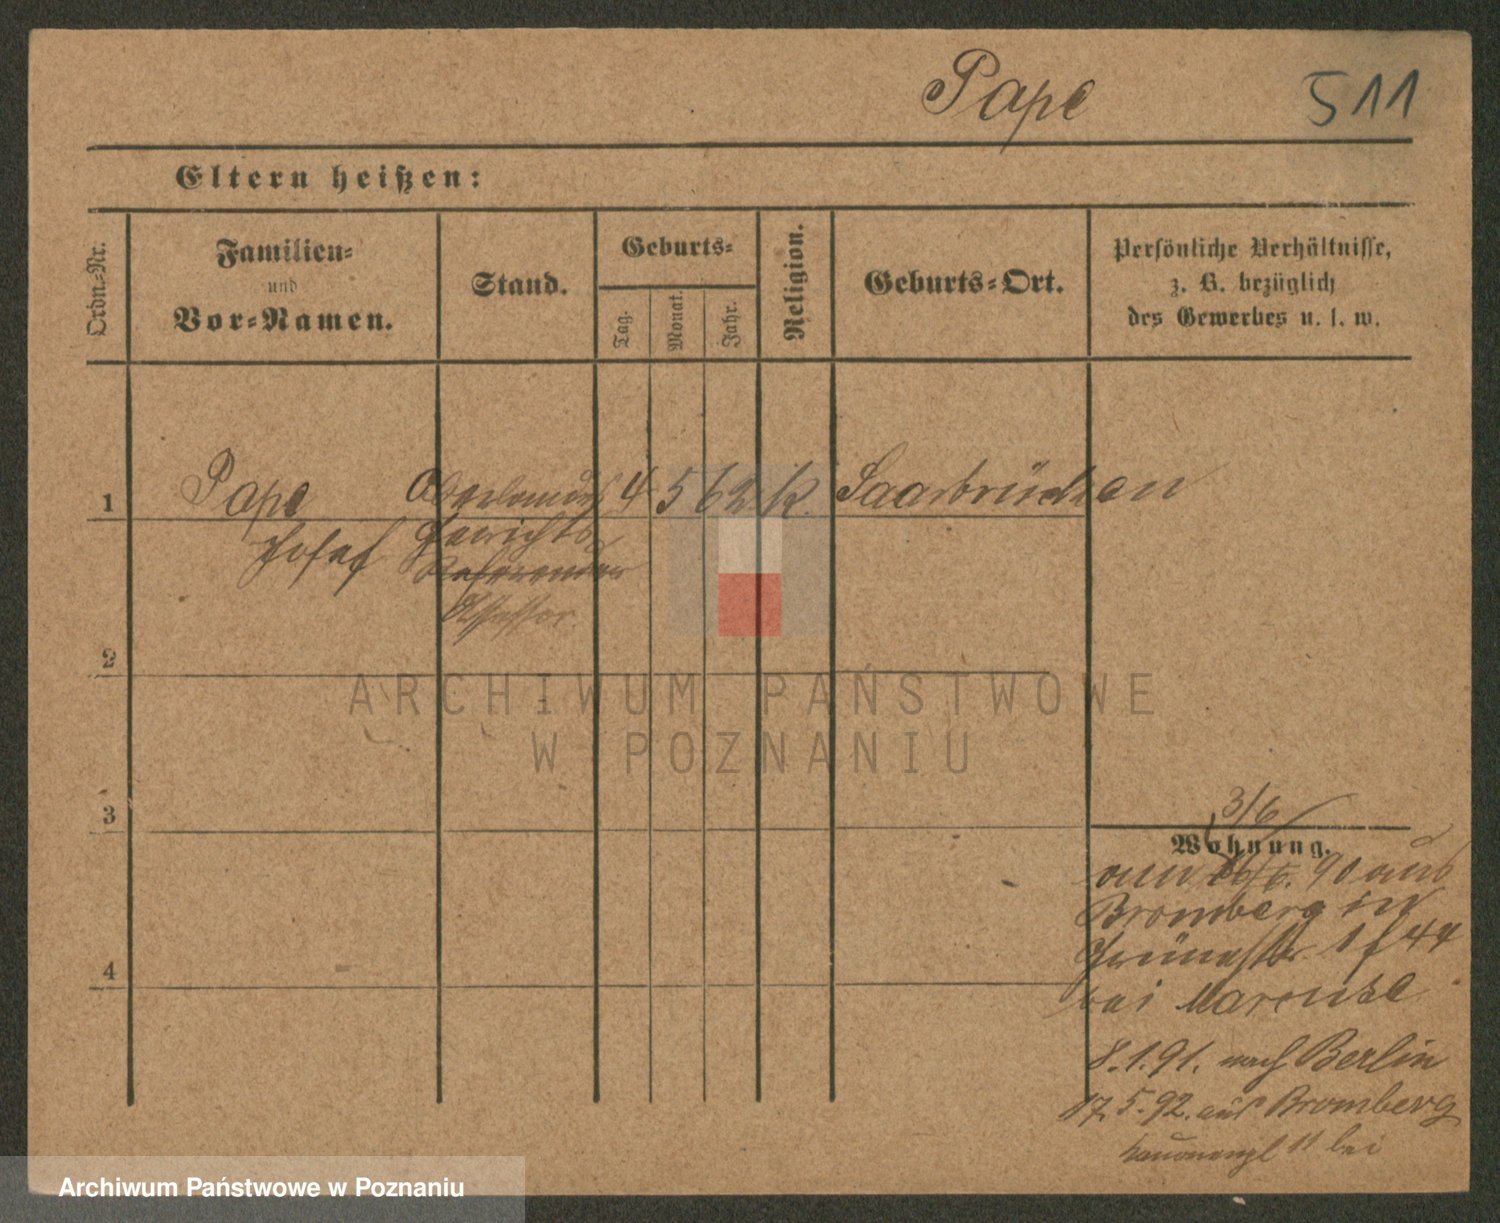 Pape 511
Eltern heißen:
Ordn.-Nr.
Familien-
und
Vor-Namen.
Stand.
Geburts-
Tag.
Monat.
Jahr.
Religion.
Geburts-Ort.
Persönliche Verhältnisse,
z. B. bezüglich
des Gewerbes u. s. w.
1 Pape Oberlandes 4 5 62 k. Saarbrücken
Josef Gerichts
Referendar
Assessor.
2
3
4
3/6
Wohnung.
90 aus
Bromberg in
44
bei Marcuse
8.1.91. nach Berlin
17.5.92. aus Bromberg
11 bei
ARCHIWUM PAŃSTWOWE
W POZNANIU
Archiwum Państwowe w Poznaniu